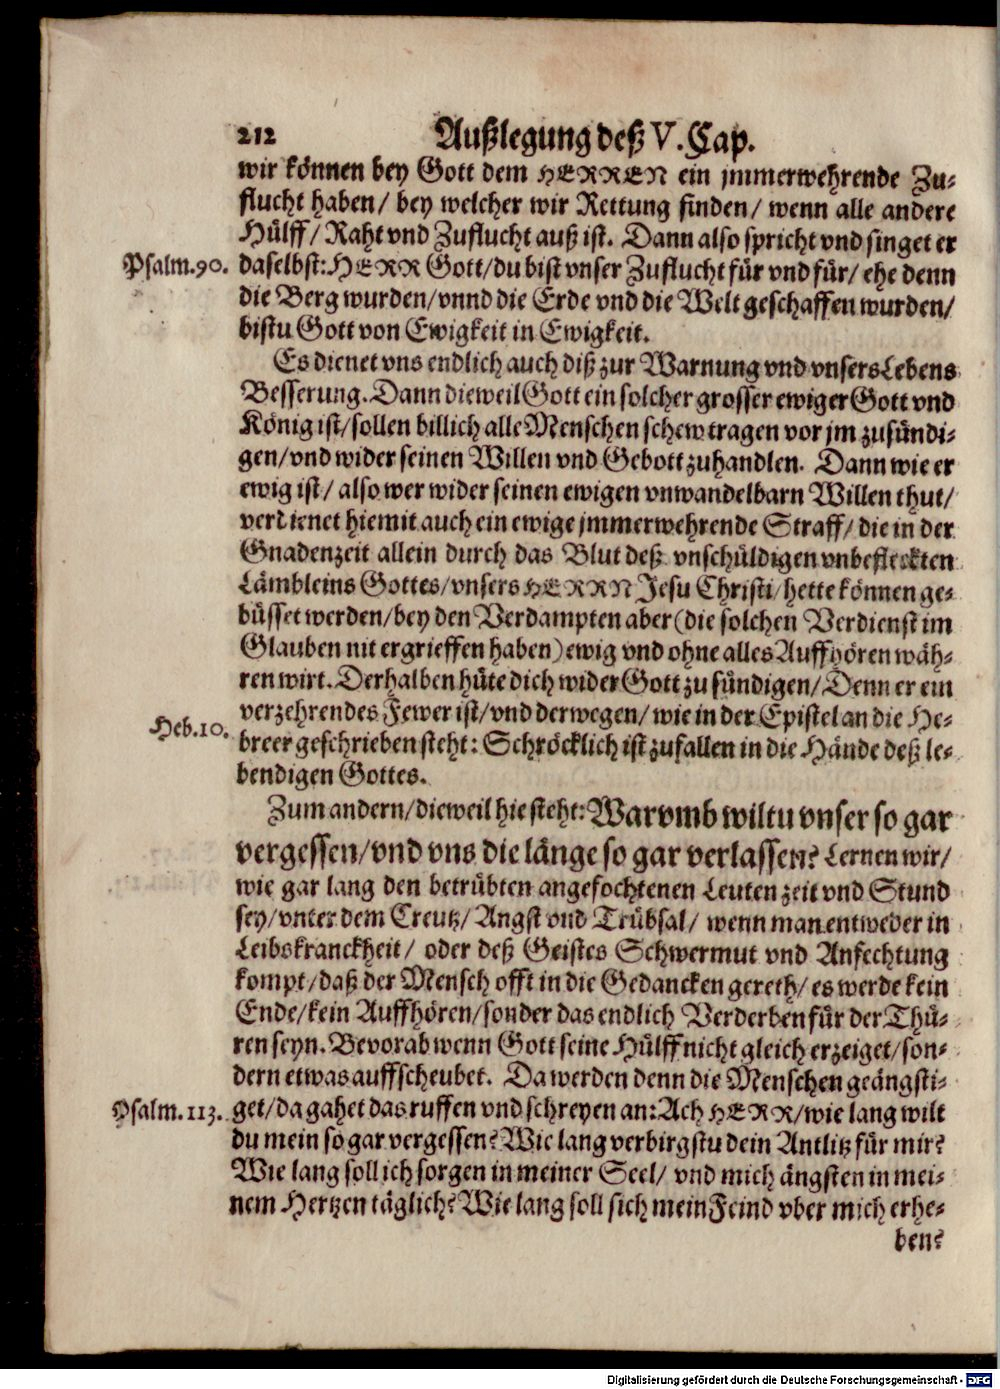 212 Außlegung deß V. Cap.
wir können bey Gott dem HERREN ein jmmerwehrende Zu-
flucht haben/ bey welcher wir Rettung finden/ wenn alle andere
Hülff/ Raht vnd Zuflucht auß ist. Dann also spricht vnd singet er
Psalm.90. daselbst: HERR Gott/ du bist vnser Zuflucht für vnd für/ ehe denn
die Berg wurden/ vnnd die Erde vnd die Welt geschaffen wurden/
bistu Gott von Ewigkeit in Ewigkeit.
Es dienet vns endlich auch diß zur Warnung vnd vnsers Lebens
Besserung. Dann dieweil Gott ein solcher grosser ewiger Gott vnd
König ist/ sollen billich alle Menschen schew tragen vor jm zusündi-
gen/ vnd wider seinen Willen vnd Gebott zuhandlen. Dann wie er
ewig ist/ also wer wider seinen ewigen vnwandelbarn Willen thut/
verdienet hiemit auch ein ewige jmmerwehrende Straff/ die in der
Gnadenzeit allein durch das Blut deß vnschüldigen vnbefleckten
Lämbleins Gottes/ vnsers HERRN Jesu Christi/ hette können ge-
büsset werden/ bey den Verdampten aber (die solchen Verdienst im
Glauben nit ergrieffen haben) ewig vnd ohne alles Auffhören wäh-
ren wirt. Derhalben hüte dich wider Gott zu sündigen/ Denn er ein
verzehrendes Fewer ist/ vnd derwegen/ wie in der Epistel an die He-
Heb.10. breer geschrieben steht: Schröcklich ist zufallen in die Hände deß le-
bendigen Gottes.
Zum andern/ dieweil hie steht: Warvmb wiltu vnser so gar
vergessen/ vnd vns die länge so gar verlassen? Lernen wir/
wie gar lang den betrübten angefochtenen Leuten zeit vnd Stund
sey/ vnter dem Creutz/ Angst vnd Trübsal/ wenn man entweder in
Leibskranckheit/ oder deß Geistes Schwermut vnd Anfechtung
kompt/ daß der Mensch offt in die Gedancken gereth/ es werde kein
Ende/ kein Auffhören/ sonder das endlich Verderben für der Thü-
ren seyn. Bevorab wenn Gott seine Hülff nicht gleich erzeiget/ son-
dern etwas auffscheubet. Da werden denn die Menschen geängsti-
Psalm.113. get/ da gahet das ruffen vnd schreyen an: Ach HERR/ wie lang wilt
du mein so gar vergessen? Wie lang verbirgstu dein Antlitz für mir?
Wie lang soll ich sorgen in meiner Seel/ vnd mich ängsten in mei-
nem Hertzen täglich? Wie lang soll sich mein Feind vber mich erhe-
ben?
Digitalisierung gefördert durch die Deutsche Forschungsgemeinschaft - DFG